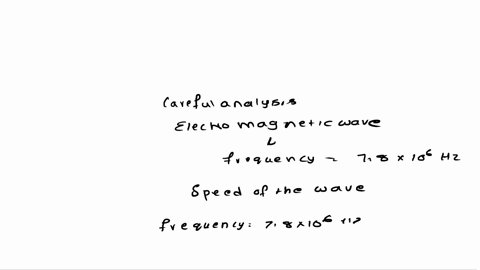 Careful analysis
Electro magnetic wave
↓
frequency = 7.8 × 10⁶ Hz
Speed of the wave
frequency: 7.8 × 10⁶ Hz